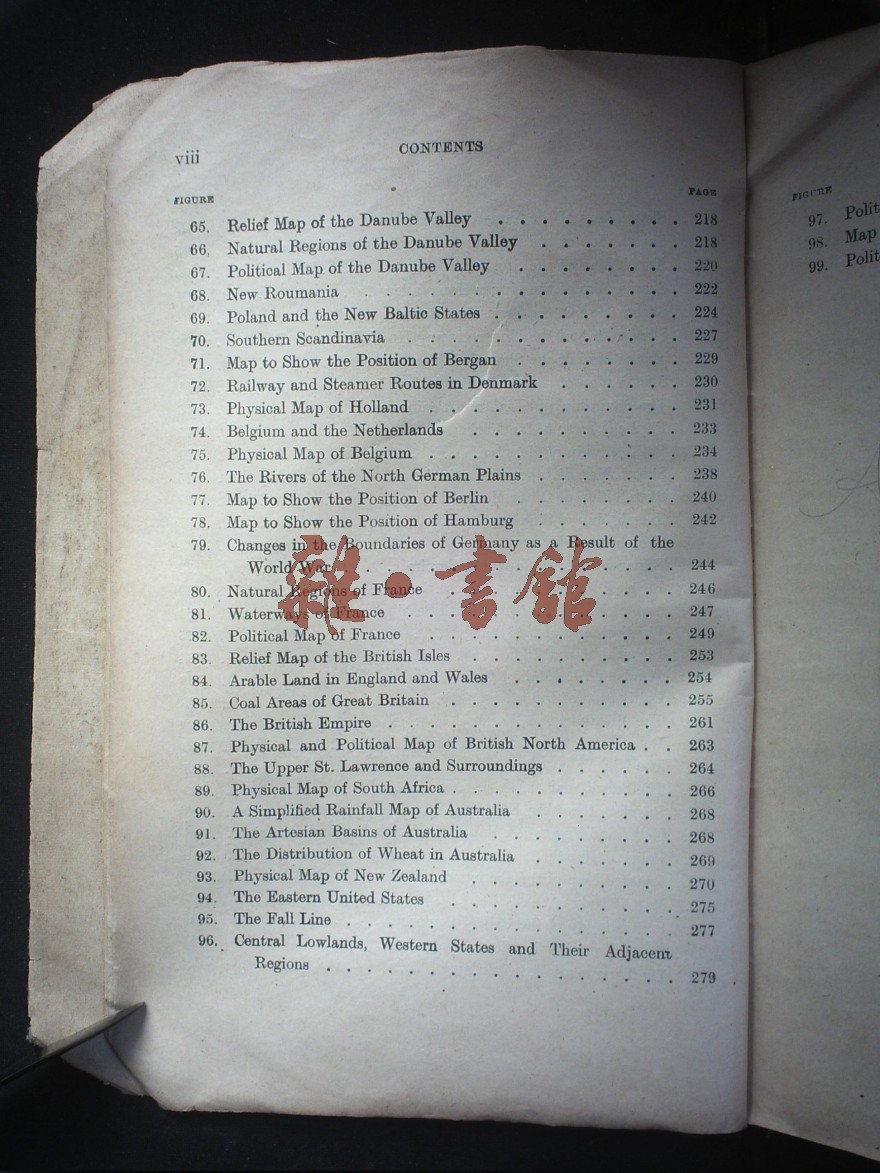 viii CONTENTS
FIGURE PAGE
65. Relief Map of the Danube Valley . . . . . . . . 218
66. Natural Regions of the Danube Valley . . . . . . 218
67. Political Map of the Danube Valley . . . . . . . 220
68. New Roumania . . . . . . . . . . . . . 222
69. Poland and the New Baltic States . . . . . . . . 224
70. Southern Scandinavia . . . . . . . . . . . . 227
71. Map to Show the Position of Bergan . . . . . . . 229
72. Railway and Steamer Routes in Denmark . . . . . . 230
73. Physical Map of Holland . . . . . . . . . . . 231
74. Belgium and the Netherlands . . . . . . . . . 233
75. Physical Map of Belgium . . . . . . . . . . . 234
76. The Rivers of the North German Plains . . . . . . 238
77. Map to Show the Position of Berlin . . . . . . . 240
78. Map to Show the Position of Hamburg . . . . . . 242
79. Changes in the Boundaries of Germany as a Result of the
World War . . . . . . . . . . . . . 244
80. Natural Regions of France . . . . . . . . . . 246
81. Waterways of France . . . . . . . . . . . . 247
82. Political Map of France . . . . . . . . . . . 249
83. Relief Map of the British Isles . . . . . . . . . 253
84. Arable Land in England and Wales . . . . . . . 254
85. Coal Areas of Great Britain . . . . . . . . . . 255
86. The British Empire . . . . . . . . . . . . . 261
87. Physical and Political Map of British North America . . 263
88. The Upper St. Lawrence and Surroundings . . . . . . 264
89. Physical Map of South Africa . . . . . . . . . . 266
90. A Simplified Rainfall Map of Australia . . . . . . 268
91. The Artesian Basins of Australia . . . . . . . . 268
92. The Distribution of Wheat in Australia . . . . . . 269
93. Physical Map of New Zealand . . . . . . . . . 270
94. The Eastern United States . . . . . . . . . . 275
95. The Fall Line . . . . . . . . . . . . . . 277
96. Central Lowlands, Western States and Their Adjacent
Regions . . . . . . . . . . . . . . 279
雜·書館
FIGURE
97. Polit
98. Map
99. Polit